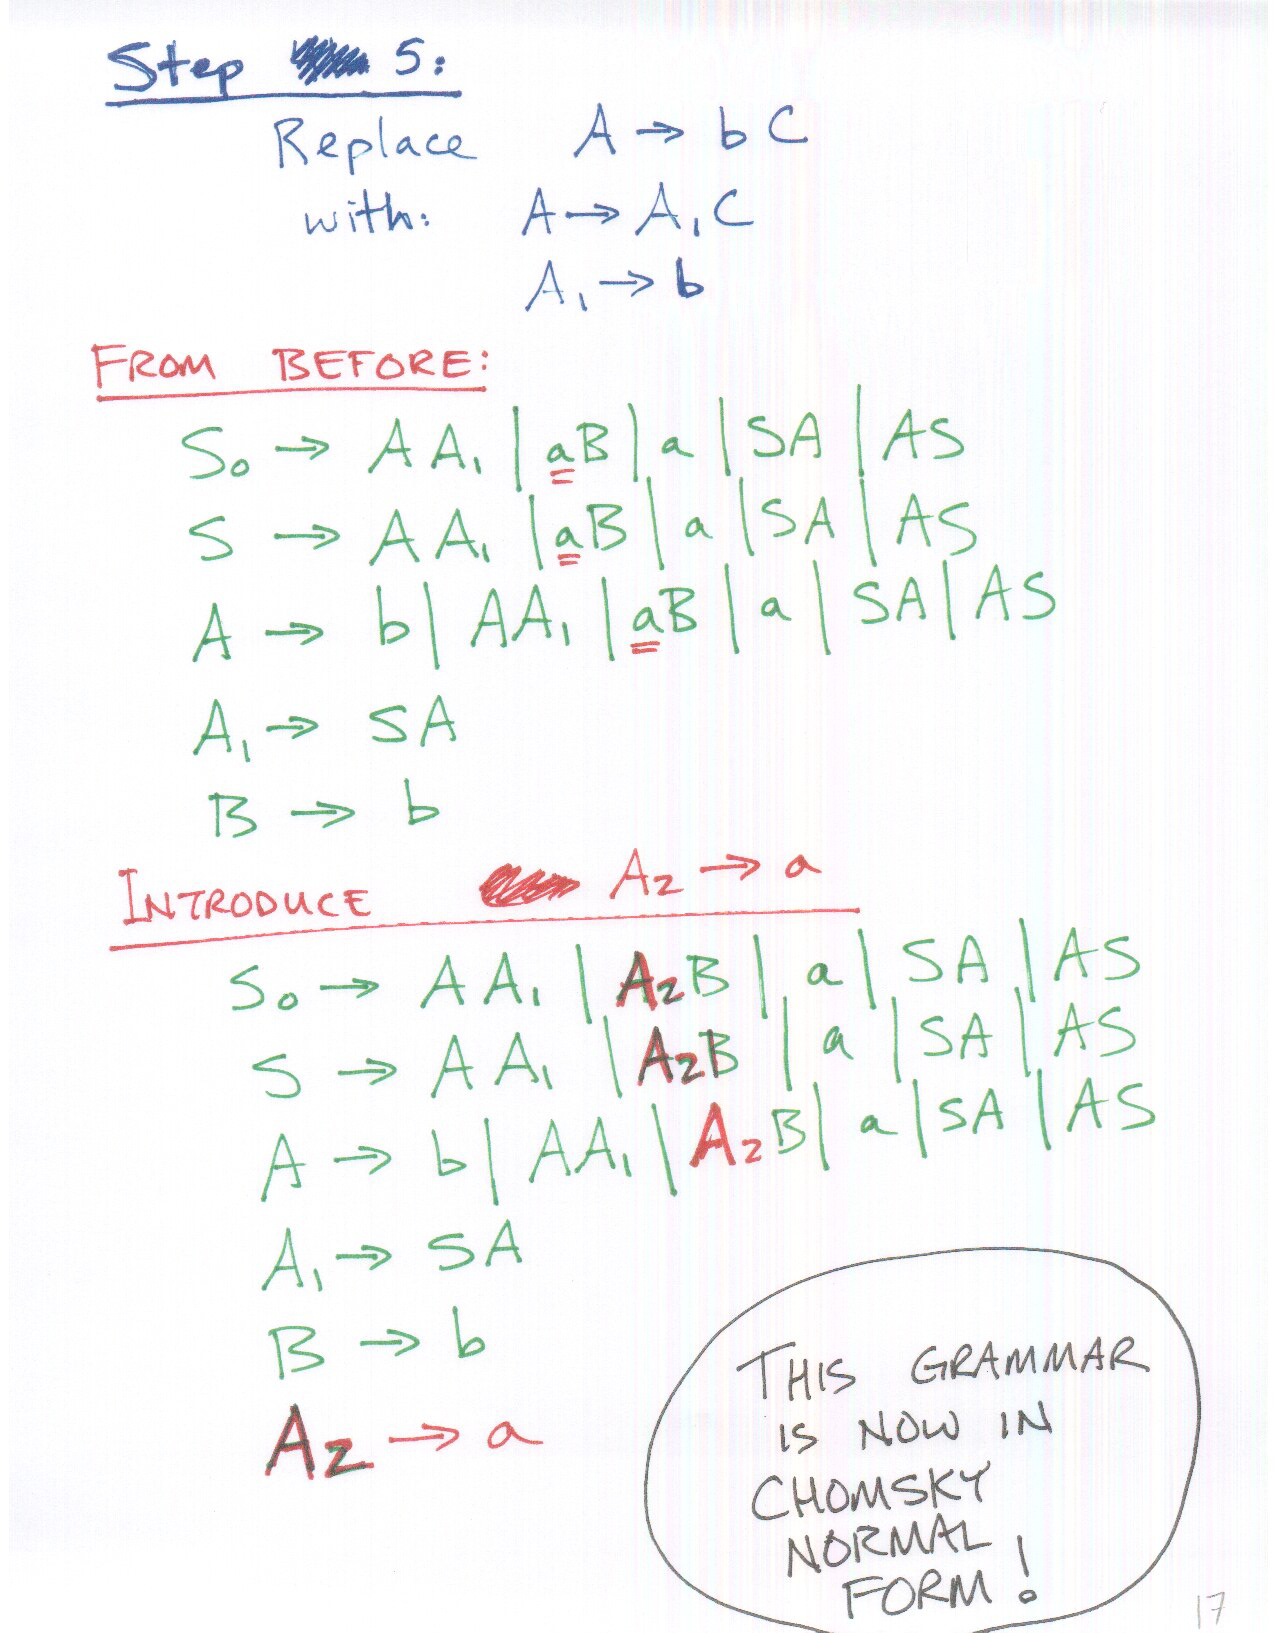 Step 5:
Replace A → b C
with: A → A₁ C
A₁ → b
FROM BEFORE:
S₀ → A A₁ | aB | a | SA | AS
S → A A₁ | aB | a | SA | AS
A → b | AA₁ | aB | a | SA | AS
A₁ → SA
B → b
INTRODUCE A₂ → a
S₀ → A A₁ | A₂B | a | SA | AS
S → A A₁ | A₂B | a | SA | AS
A → b | AA₁ | A₂B | a | SA | AS
A₁ → SA
B → b
A₂ → a
THIS GRAMMAR
IS NOW IN
CHOMSKY
NORMAL
FORM!
17